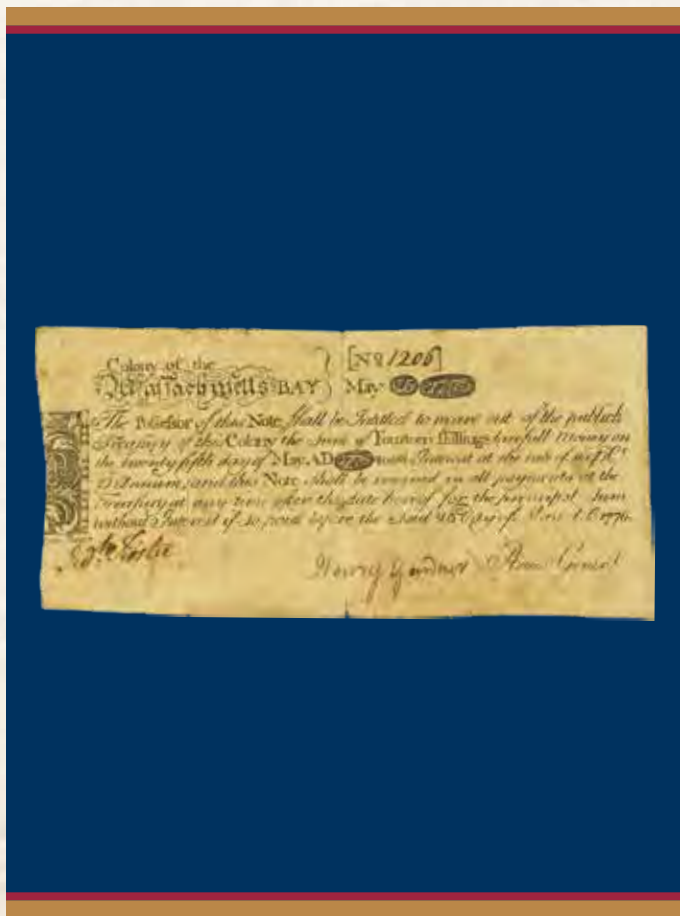 Colony of the
Massachusetts BAY
[No 1206]
May 25 1775
The Possessor of this Note shall be Intitled to receive out of the publick
Treasury of this Colony the Sum of Fourteen shillings lawfull Money on
the twenty fifth day of May. A.D with Interest at the rate of six
Annum, and this Note shall be received in all payments at the
Treasury at any time after the date hereof for the principal Sum
without Interest if so paid before the said Day of
Henry Gardner